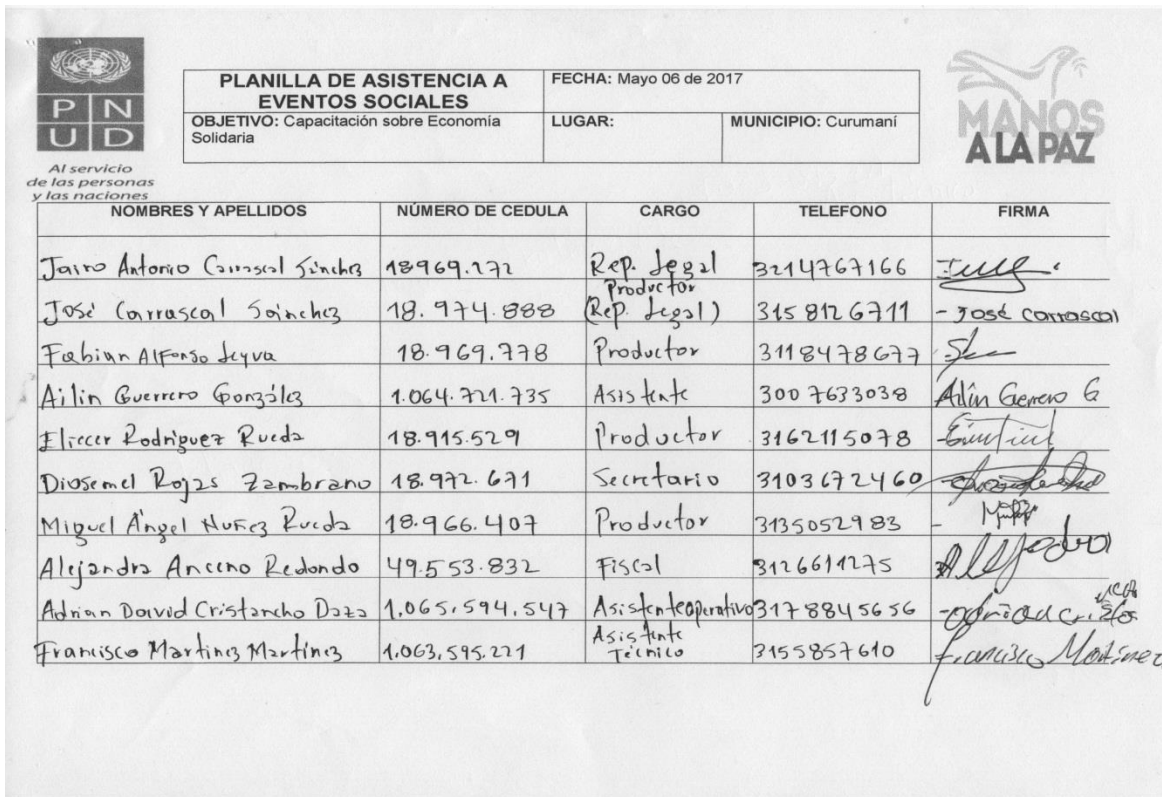 PNUD
Al servicio
de las personas
y las naciones
PLANILLA DE ASISTENCIA A
EVENTOS SOCIALES
FECHA: Mayo 06 de 2017
OBJETIVO: Capacitación sobre Economía
Solidaria
LUGAR:
MUNICIPIO: Curumaní
MANOS
A LA PAZ
NOMBRES Y APELLIDOS NÚMERO DE CEDULA CARGO TELEFONO FIRMA
Jairo Antonio Carrascal Sánchez 18969.272 Rep. Legal 3214767166
José Carrascal Sáinchez 18.974.888 Productor (Rep. Legal) 3158126711 - José carrascal
Fabian Alfonso Leyva 18.969.778 Productor 3118478677
Ailin Guerrero González 1.064.721.735 Asistente 3007633038 Ailin Gerrero G
Eliecer Rodriguez Rueda 18.915.529 Productor 3162115078
Diosemel Rojas Zambrano 18.972.671 Secretario 3103672460
Miguel Ángel Nuñez Rueda 18.966.407 Productor 3135052983
Alejandra Anceno Redondo 49.553.832 Fiscal 3126611275
Adrian David Cristancho Daza 1.065.594.547 Asistente operativo 3178845656
Francisco Martinez Martínez 1.063.595.221 Asistente Técnico 3155857610 Francisco Martinez